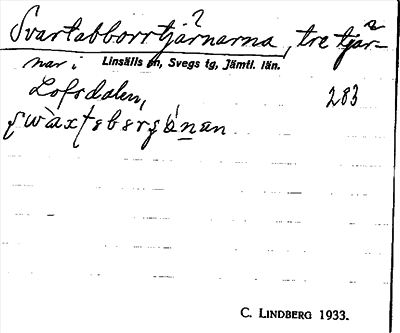 Svartabborrtjärnarna, tre tjär-
nar i Linsälls sn, Svegs tg, Jämtl. län.
Lofsdalen, 283
C. LINDBERG 1933.